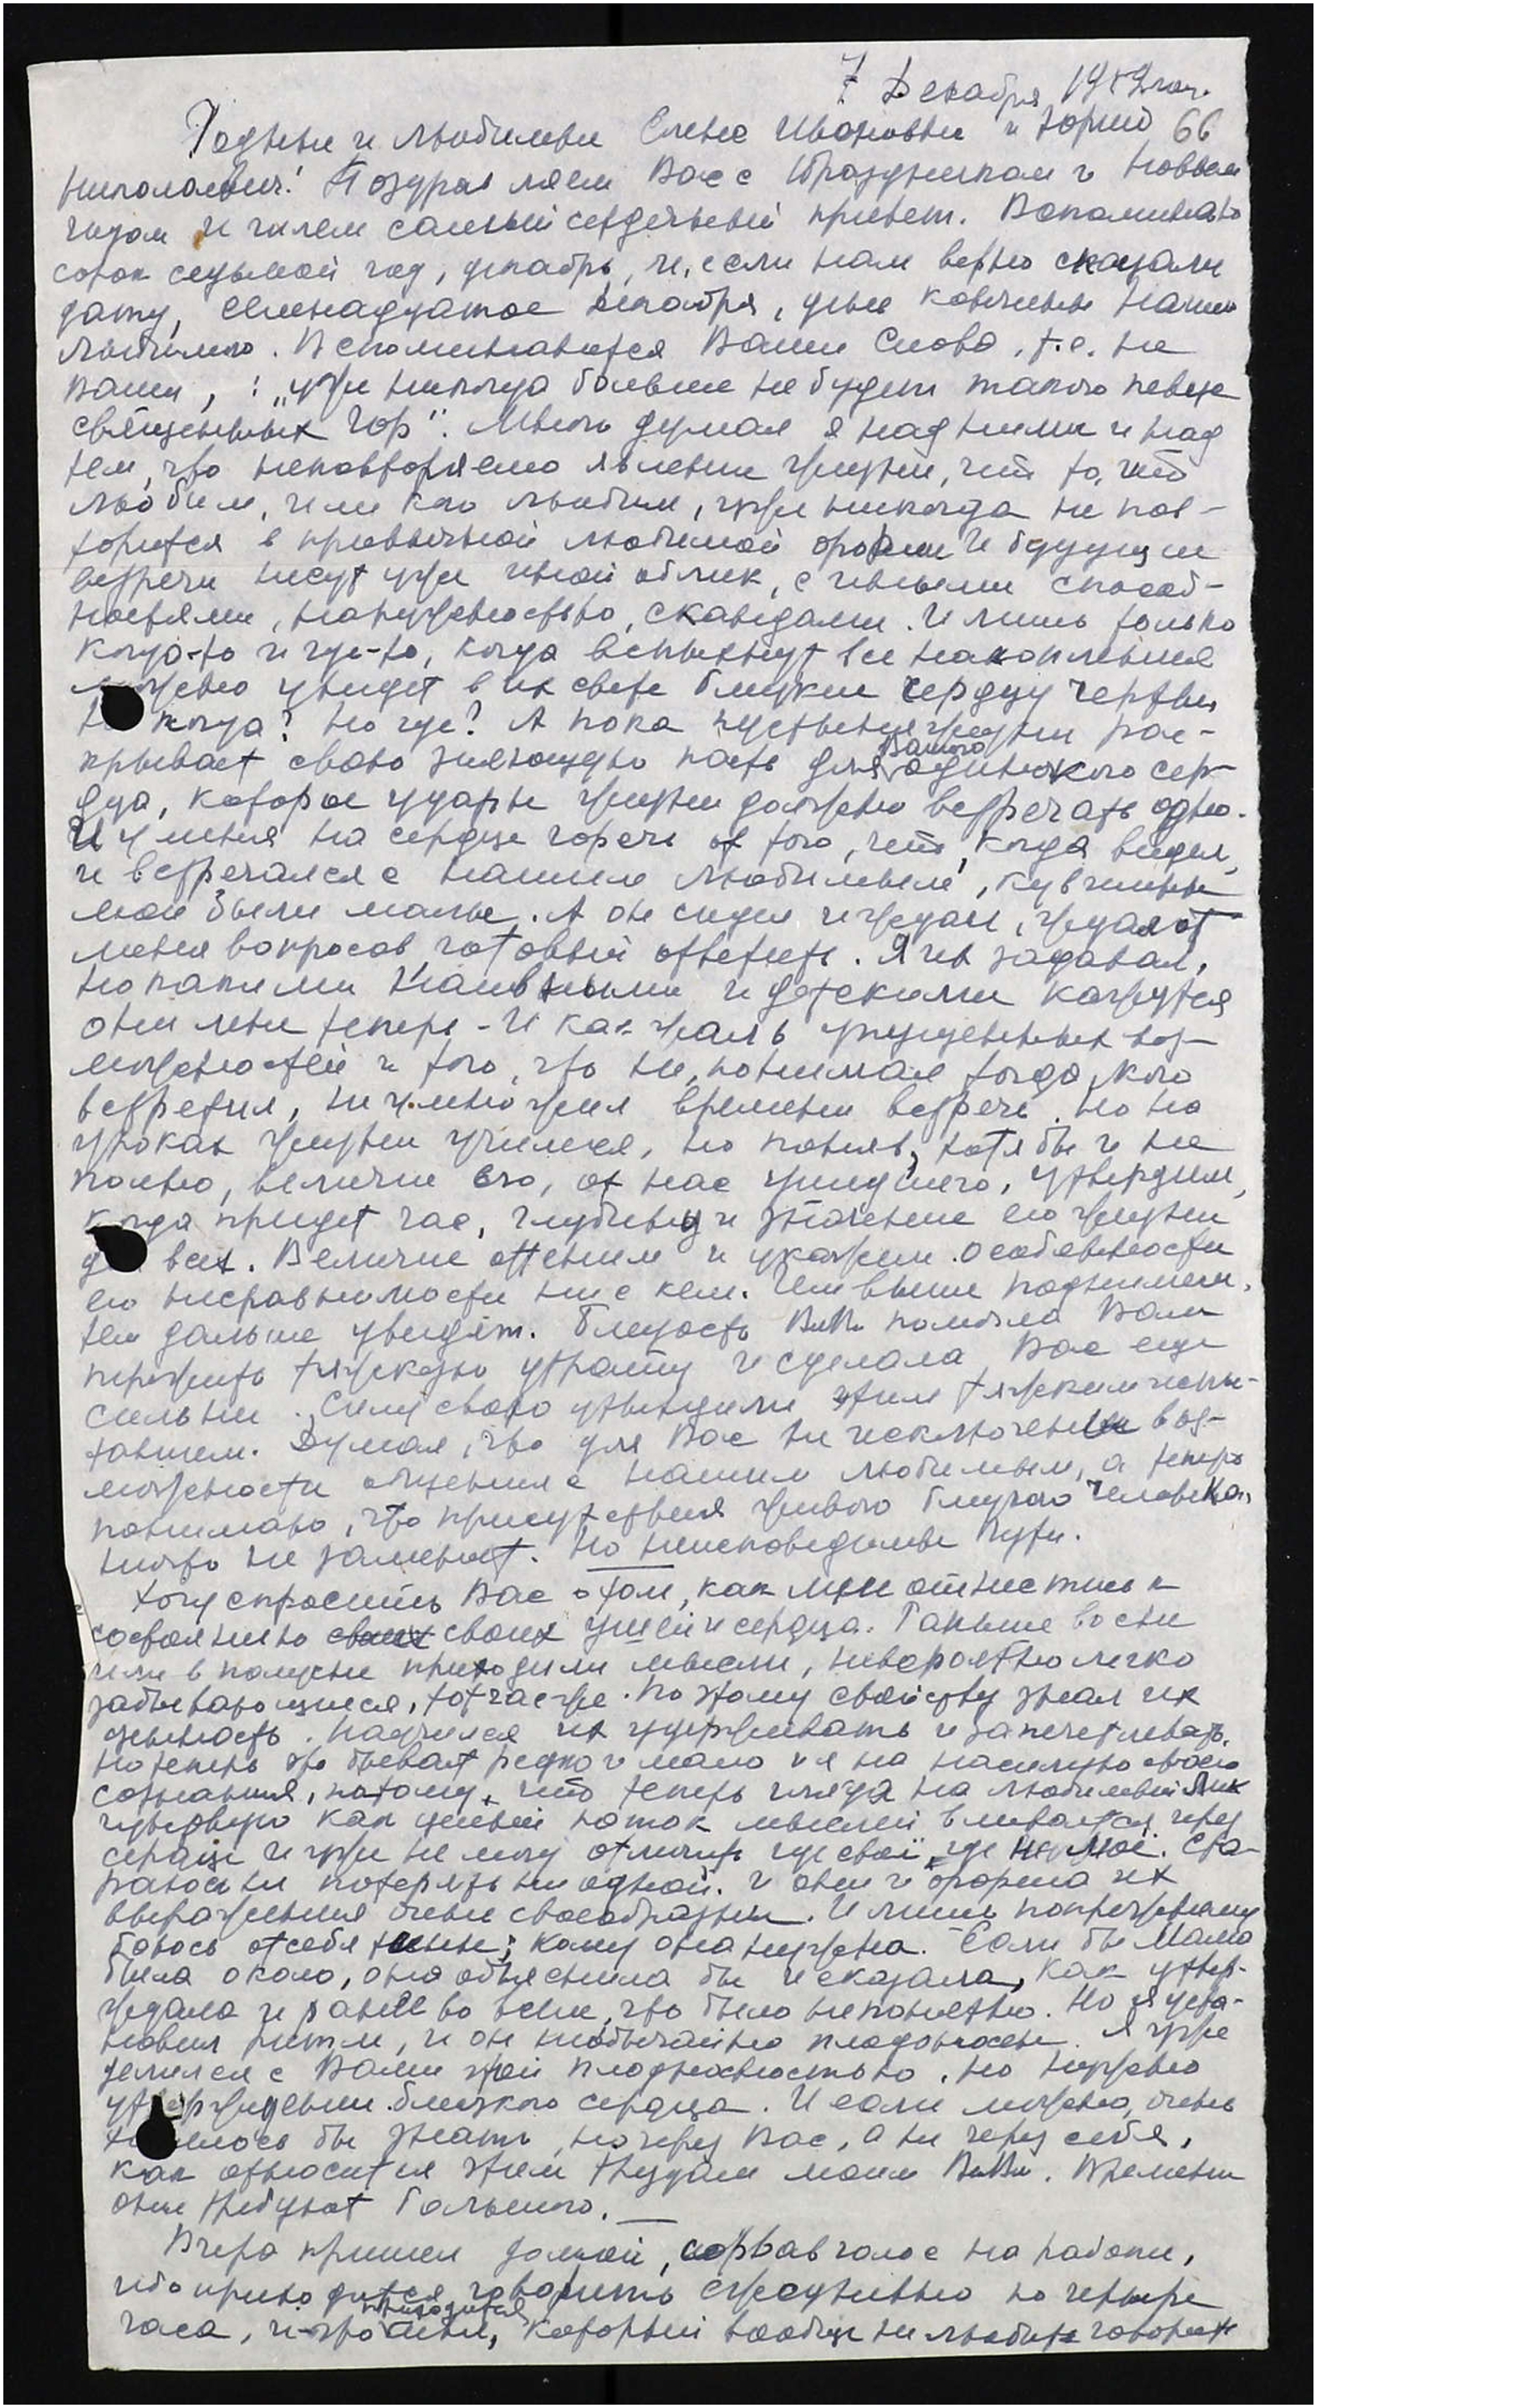 7 Декабря 1959 год.
66
Родные и любимые Елена Ивановна и Юрий
Николаевич! Поздравляем Вас с Праздником и Новым
годом и шлем самый сердечный привет. Вспоминаю
сорок седьмой год, декабрь, и, если нам верно сказали
дату, семнадцатое декабря, день кончины нашего
любимого. Вспоминаются Ваши слова, т.е. не
Ваши, : „уже никогда больше не будет такого певца
священных гор". Много думал я над ними и над
тем, что неповторяемо явление жизни, что то, что
любим, или кого любим, уже никогда не пов-
торится в привычной любимой форме и будущие
встречи несут уже иной облик, с иными способ-
ностями, наружностью, скандами. И лишь только
когда-то и где-то, когда вспыхнут все накопления
можно увидеть в их свете близкие сердцу черты,
Но когда? Но где? А пока пустыня жизни рас-
крывает свою зияющую пасть для Вашего одинокого сер-
дца, которое удары жизни должно встречать одно.
И у меня на сердце горечь от того, что, когда видел,
и встречался с нашим любимым, кувшины
мои были малы. А он сидел и ждал, ждал от
меня вопросов, готовый ответить. Я их задавал,
но какими наивными и детскими кажутся
они мне теперь. И как жаль упущенных воз-
можностей и того, что не, понимая тогда, кого
встретил, не умножил времени встреч. Но на
уроках жизни учимся, но поняв, хотя бы и не
полно, величие его, от нас ушедшего, утвердим,
когда придет час, глубину и значение его жизни
для всех. Величие оттеним и укажем особенности
его несравнимости ни с кем. Чем выше поднимем,
тем дальше увидят. Близость Вл.Вл. помогла Вам
пережить тяжкую утрату и сделала Вас еще
сильнее. Силу свою утвердили этим тяжким испы-
танием. Думал, что для Вас не исключены воз-
можности общения с нашим любимым, а теперь
понимаю, что присутствия живого близкого человека,
ничто не заменит. Но неисповедимы пути.
Хочу спросить Вас о том, как мне отнестись к
состоянию своих ушей и сердца. Раньше во сне
или в полусне приходили мысли, невероятно легко
забывающиеся, тотчас же. По этому свойству знал их
ценность. Научился их удерживать и запечатлевать.
Но теперь это бывает редко и мало и я на насилую своего
сознания, потому, что теперь глядя на любимый Лик
чувствую как целый поток мыслей вливается через
сердце и уже не могу отличить где свои, где не мои. Ста-
раюсь не потерять ни одной. И они и форма их
выражения очень своеобразны. И лишь попрежнему
боюсь отсебятины; кому она нужна. Если бы Мама
была около, она объяснила бы и сказала, как утвер-
ждала и ранее во всем, что было непонятно. Но я уста-
новил ритм, и он необычайно плодоносен. Я уже
делился с Вами этой плодоносностью. Но нужно
утверждение близкого сердца. И если можно, очень
хотелось бы знать, но через Вас, а не через себя,
как относится этим трудам моим Вл.Вл. Времени
они требуют большого.
Вчера пришел домой, сорвав голос на работе,
ибо приходится говорить ежедневно по четыре
часа, и это приходится мне, который вообще не любит говорить